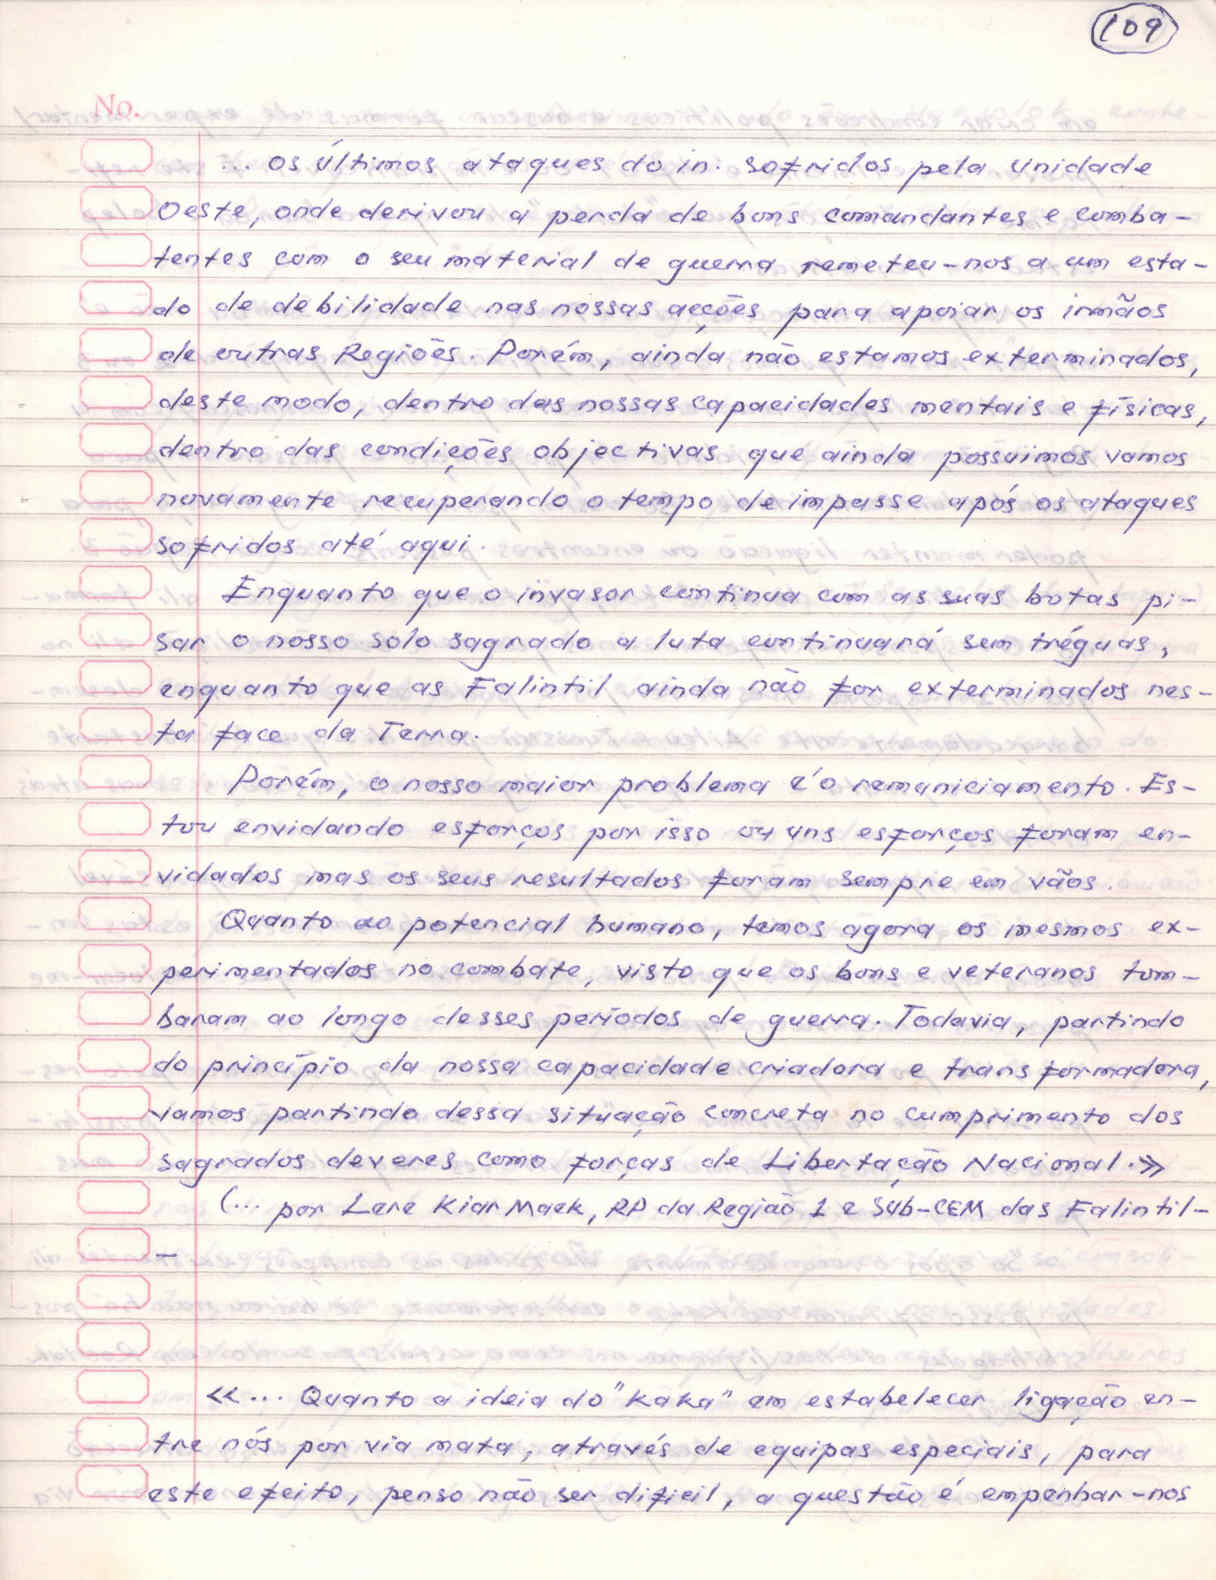 109
No.
... Os últimos ataques do in. sofridos pela Unidade
Oeste, onde derivou a "perda" de bons comandantes e comba-
tentes com o seu material de guerra remeteu-nos a um esta-
do de debilidade nas nossas acções para apoiar os irmãos
de outras Regiões. Porém, ainda não estamos exterminados,
deste modo, dentro das nossas capacidades mentais e físicas,
dentro das condições objectivas que ainda possuimos vamos
novamente recuperando o tempo de impasse após os ataques
sofridos até aqui.
Enquanto que o invasor continua com as suas botas pi-
sar o nosso solo sagrado a luta continuará sem tréguas,
enquanto que as Falintil ainda não for exterminados nes-
ta face da Terra.
Porém, o nosso maior problema é o remuniciamento. Es-
tou envidando esforços por isso ou uns esforços foram en-
vidados mas os seus resultados foram sempre em vãos.
Quanto ao potencial humano, temos agora os mesmos ex-
perimentados no combate, visto que os bons e veteranos tom-
baram ao longo desses períodos de guerra. Todavia, partindo
do princípio da nossa capacidade criadora e transformadora,
vamos partindo dessa situação concreta no cumprimento dos
sagrados deveres como forças de Libertação Nacional.»
(... por Lere Kiar Maek, RP da Região 1 e Sub-CEM das Falintil-
-
«... Quanto a ideia do "Kaka" em estabelecer ligação en-
tre nós por via mata, através de equipas especiais, para
este efeito, penso não ser dificil, a questão é empenhar-nos